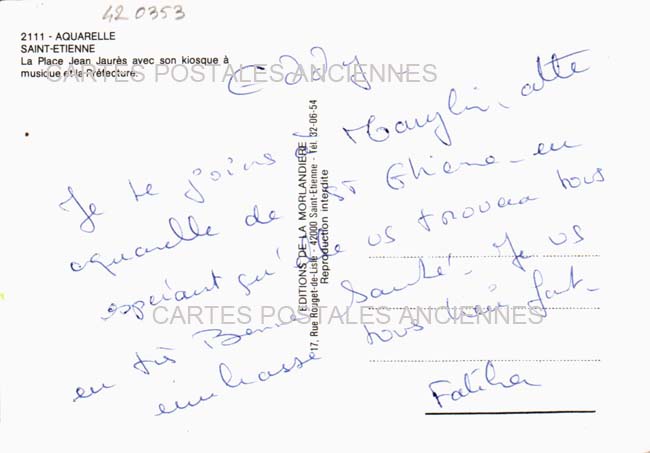 42 0353
2111 - AQUARELLE
SAINT-ETIENNE
La Place Jean Jaurès avec son kiosque à
musique et la Préfecture.
CARTES POSTALES ANCIENNES
Eddy
Je te joins à Marylin, cette
aquarelle de St Etienne - en
espérant qu'elle vs trouvera tous
en très Bonne Santé. Je vs
embrasse tous bien fort.
Fatiha
CARTES POSTALES ANCIENNES
EDITIONS DE LA MORLANDIERE
17, Rue Rouget-de-Lisle - 42000 Saint-Etienne - Tél. 32-06-54
Reproduction interdite